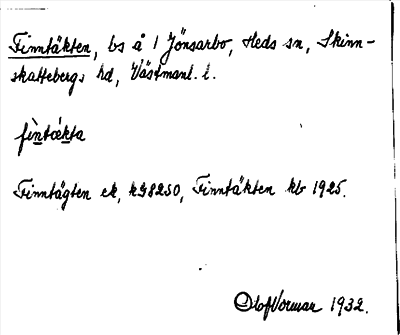 Finntäkten, bs å 1 Jönsarbo, Heds sn, Skinn-
skattebergs hd, Västmanl. l.
fìntǽkta
Finntägten ek, 1925.
Finntäkten kb
Olof Vorman 1932.